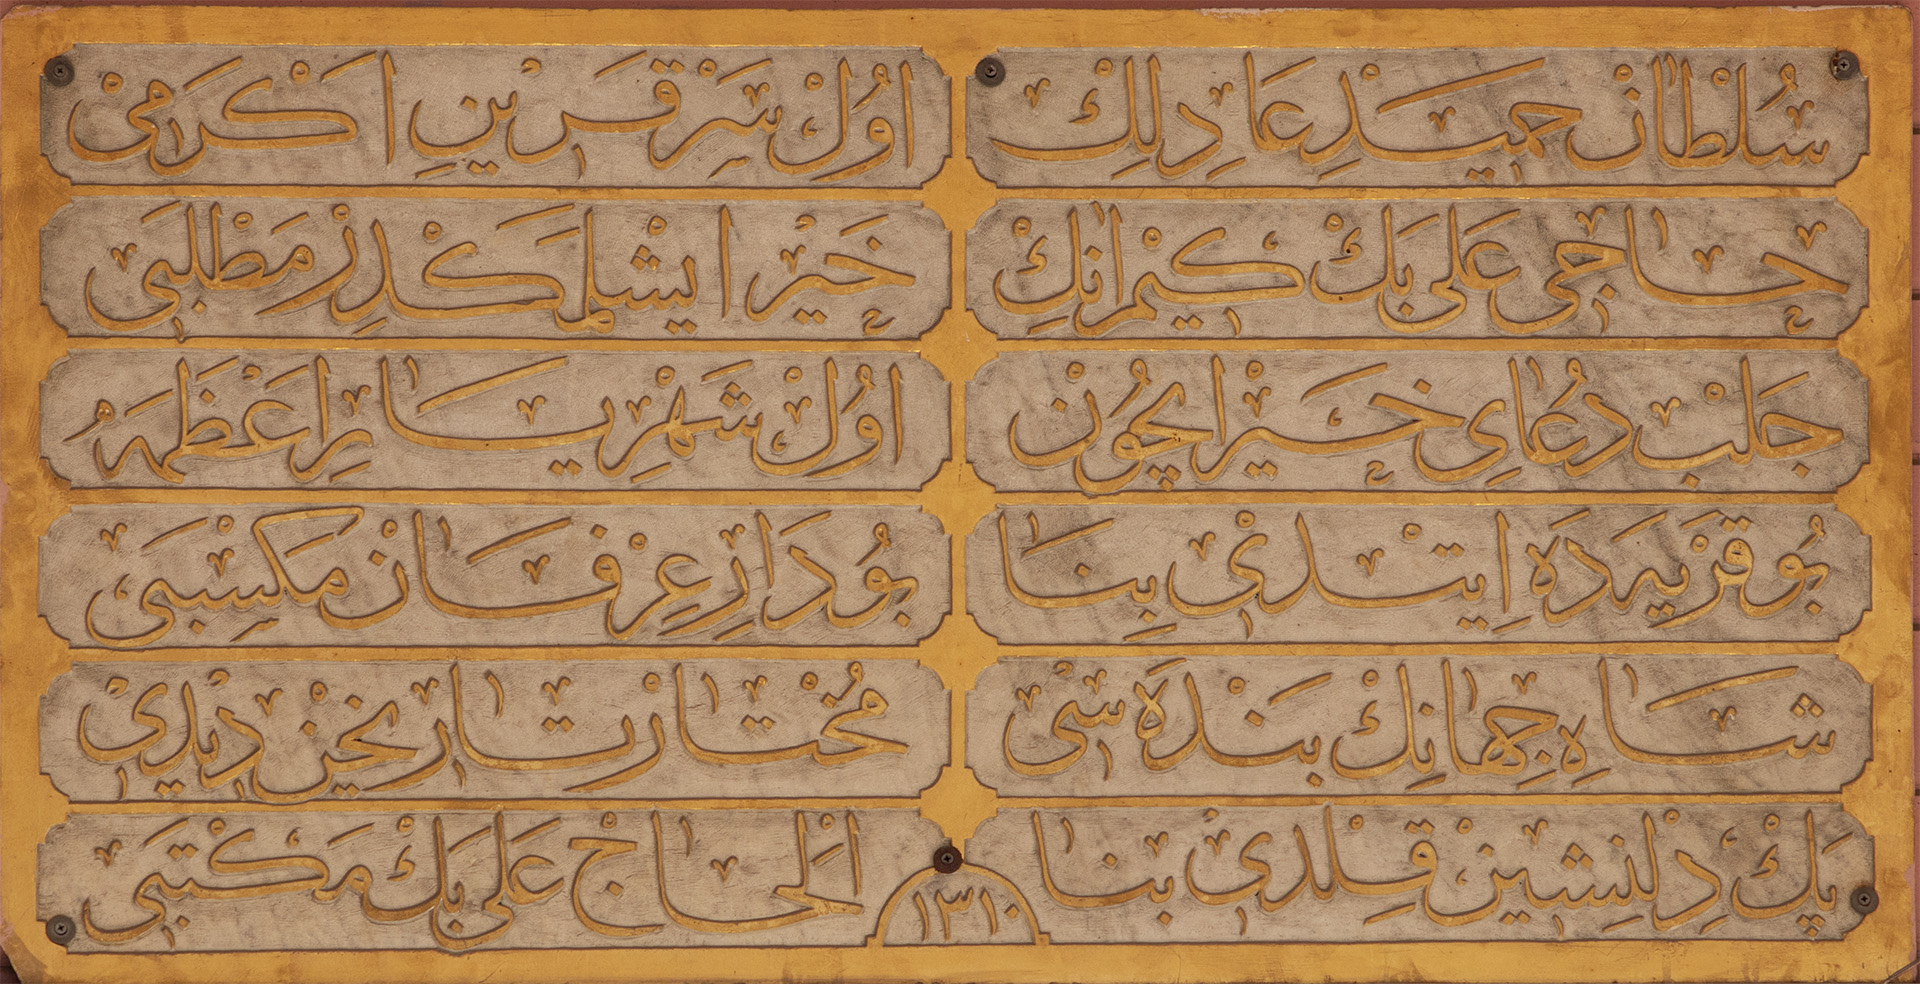 سُلْطَانْ حَمِيدْ عَادِلِكْ
اَوُلْ سَرْ قَرْيِنِ اَكْرَمِىْ
حَاجِى عَلِى بَكْ كِيمْ اَنِكْ
خَيْرْ اِيشْلَمَكْدِرْ مَطْلَبِى
جَلْبِ دُعَاىِ خَيْر اِيچُونْ
اَوُلْ شَهْرِيَارِ اَعْظَمَهْ
بُو قَرْيَهدَه اِيتْدِىْ بِنَا
بُو دَارِ عِرْفَانْ مَكْسَبِى
شَاهِ جِهَانِكْ بَنْدَه سِىْ
مُخْتَارْ تَارِيخِنْ دِيدِىْ
پَكْ دِلْنِشِينْ قِلْدِىْ بِنَا
اَلْحَاجْ عَلِى بَكْ مَكْتَبِى
١٣١٠